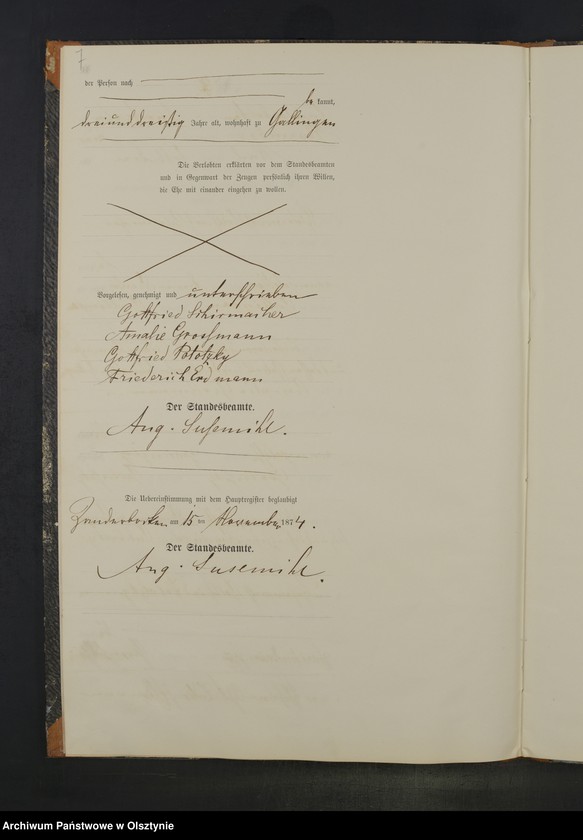 7
der Person nach
be kannt,
dreiunddreißig Jahre alt, wohnhaft zu Gallingen
Die Verlobten erklärten vor dem Standesbeamten
und in Gegenwart der Zeugen persönlich ihren Willen,
die Ehe mit einander eingehen zu wollen.
Vorgelesen, genehmigt und unterschrieben
Gottfried Schirmacher
Amalie Grossmann
Gottfried Pototzky
Friederich Erdmann
Der Standesbeamte.
Aug. Susemihl.
Die Uebereinstimmung mit dem Hauptregister beglaubigt
am 15 ten November 1874.
Der Standesbeamte.
Aug. Susemihl.
Archiwum Państwowe w Olsztynie